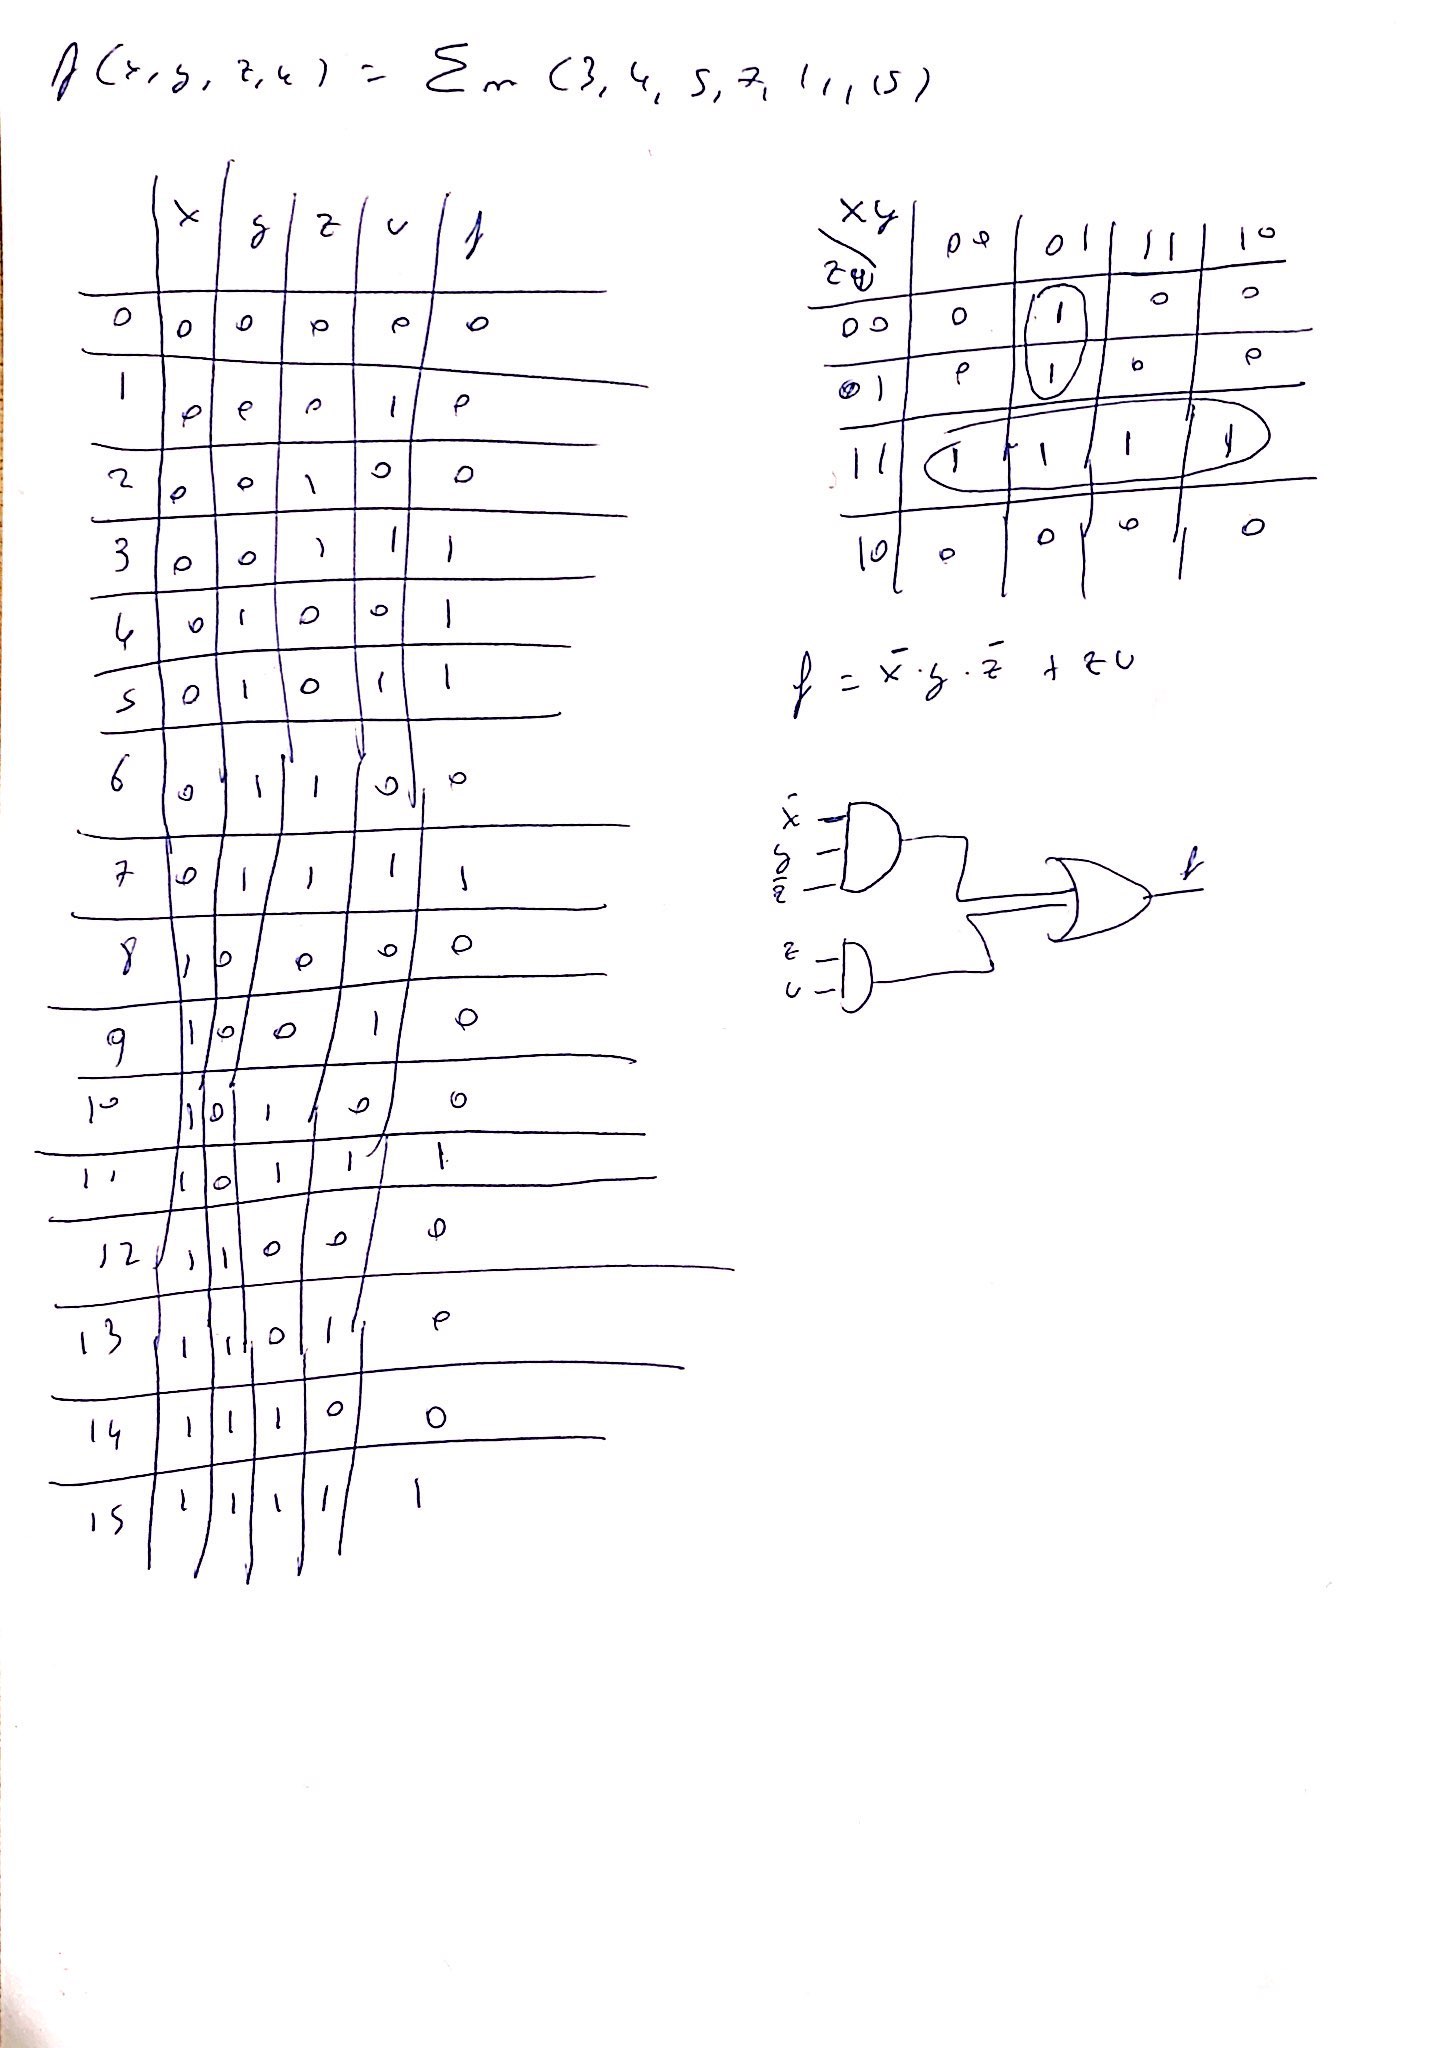 f(x, y, z, u) = Σm (3, 4, 5, 7, 11, 15)
x y z u f
0 0 0 0 0 0
1 0 0 0 1 0
2 0 0 1 0 0
3 0 0 1 1 1
4 0 1 0 0 1
5 0 1 0 1 1
6 0 1 1 0 0
7 0 1 1 1 1
8 1 0 0 0 0
9 1 0 0 1 0
10 1 0 1 0 0
11 1 0 1 1 1
12 1 1 0 0 0
13 1 1 0 1 0
14 1 1 1 0 0
15 1 1 1 1 1
xy 00 01 11 10
zu
00 0 1 0 0
01 0 1 0 0
11 1 1 1 1
10 0 0 0 0
f = x̄ · y · z̄ + zu
x̄
y
z̄
f
z
u